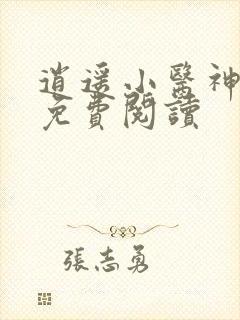 逍遥小醫神
免費閱讀
張志勇